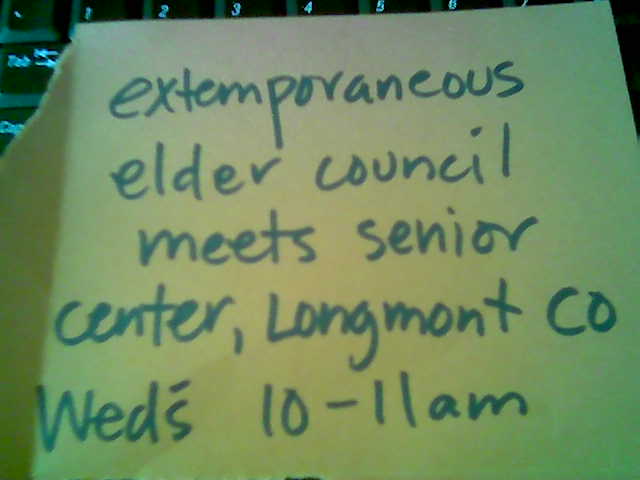 1 2 3 4 5 6
extemporaneous
elder council
meets senior
center, Longmont CO
Wed's 10-11am